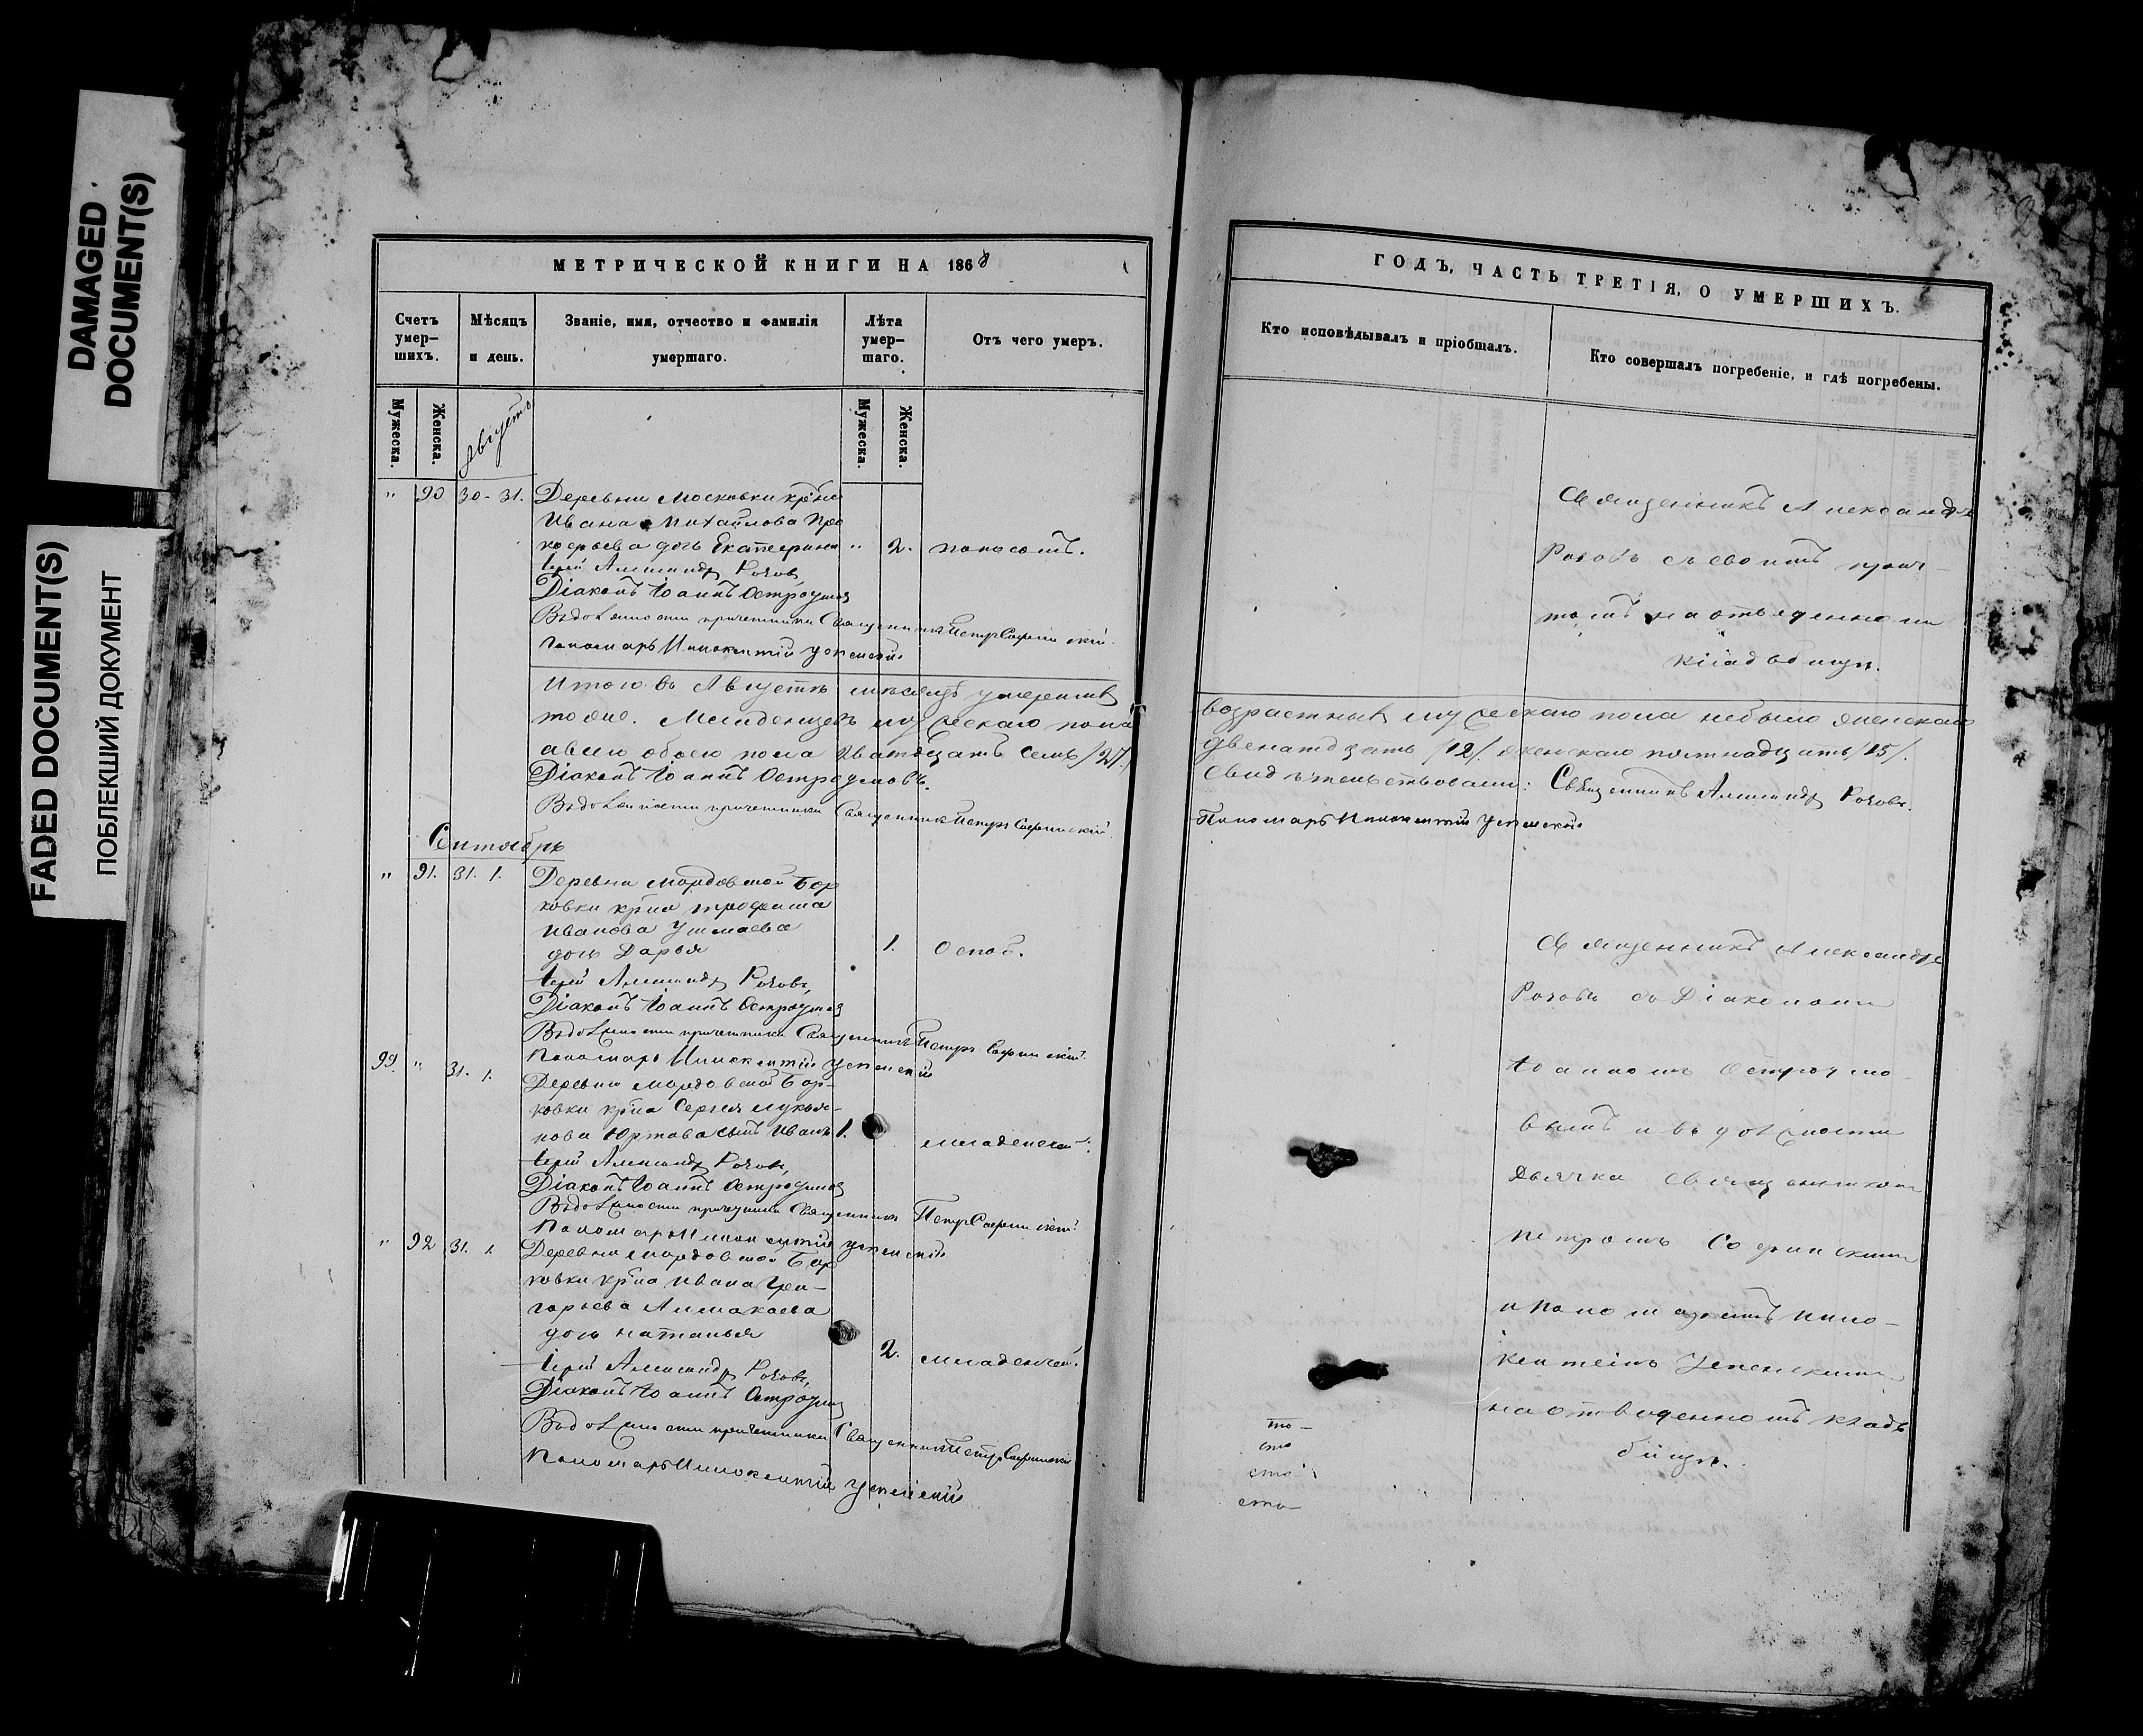 DAMAGED
DOCUMENT(S)
FADED DOCUMENT(S)
ПОБЛЕКШИЙ ДОКУМЕНТ
МЕТРИЧЕСКОЙ КНИГИ НА 1868
Счетъ умер-шихъ.
Мѣсяцъ и день.
Званіе, имя, отчество и фамилія умершаго.
Лѣта умер-шаго.
Отъ чего умеръ.
Мужеска.
Женска.
Августъ
Мужеска.
Женска.
" 90 30-31. Деревни Московки кр-на
Ивана Михайлова Про
кофьева дочь Екатерина " 2. поносомъ.
Іерей Александръ Роговъ,
Діаконъ Іоаннъ Остроумов
Въ должности причетника Священникъ Петръ Софинскій.
Пономарь Иннокентій Успенскій
Итого въ Августѣ мѣсяцѣ умершихъ
тоже. Младенцевъ мужескаго пола
а всего обоего пола двадцать семь /27/.
Діаконъ Іоаннъ Остроумовъ.
Въ должности причетника Священникъ Петръ Софинскій
Сентябрь
" 91. 31. 1. Деревни Мордовской Бор
ковки кр-на Трофима
Иванова
дочь Дарья 1. Оспой.
Іерей Александръ Роговъ,
Діаконъ Іоаннъ Остроумов
Въ должности причетника Священникъ Петръ Софинскій
Пономарь Иннокентій Успенскій
99. " 31. 1. Деревни Мордовской Бор-
ковки кр-на Сергея Лукья-
нова Юртова сынъ Иванъ 1. младенской.
Іерей Александръ Роговъ,
Діаконъ Іоаннъ Остроумов
Въ должности причетника Священникъ Петръ Софинскій
Пономарь Иннокентій Успенскій
" 92 31. 1. Деревни Мордовской Бор
ковки кр-на Ивана Гри-
горьева Алмакаева
дочь Наталья 2. младенчес.
Іерей Александръ Роговъ,
Діаконъ Іоаннъ Остроумов
Въ должности причетника Священникъ Петръ Софинскій
Пономарь Иннокентій Успенскій
ГОДЪ, ЧАСТЬ ТРЕТІЯ, О УМЕРШИХЪ.
Кто исповѣдывалъ и пріобщалъ.
Кто совершалъ погребеніе, и гдѣ погребены.
Священникъ Александръ
Роговъ съ своимъ прич-
томъ на отведенномъ
кладбищѣ.
возрастныхъ мужескаго пола небыло женскаго
двенатдцать /12/. женскаго пятнадцать /15/.
Свидѣтельствовали: Священникъ Александръ Роговъ.
Пономарь Иннокентій Успенскій
Священникъ Александръ
Роговъ съ Діакономъ
Іоанномъ Остроумо-
вымъ и въ должности
дьячка Священникомъ
Петромъ Софинскимъ
и пономаремъ Инно-
кентіемъ Успенскимъ
на отведенномъ клад
бищѣ.